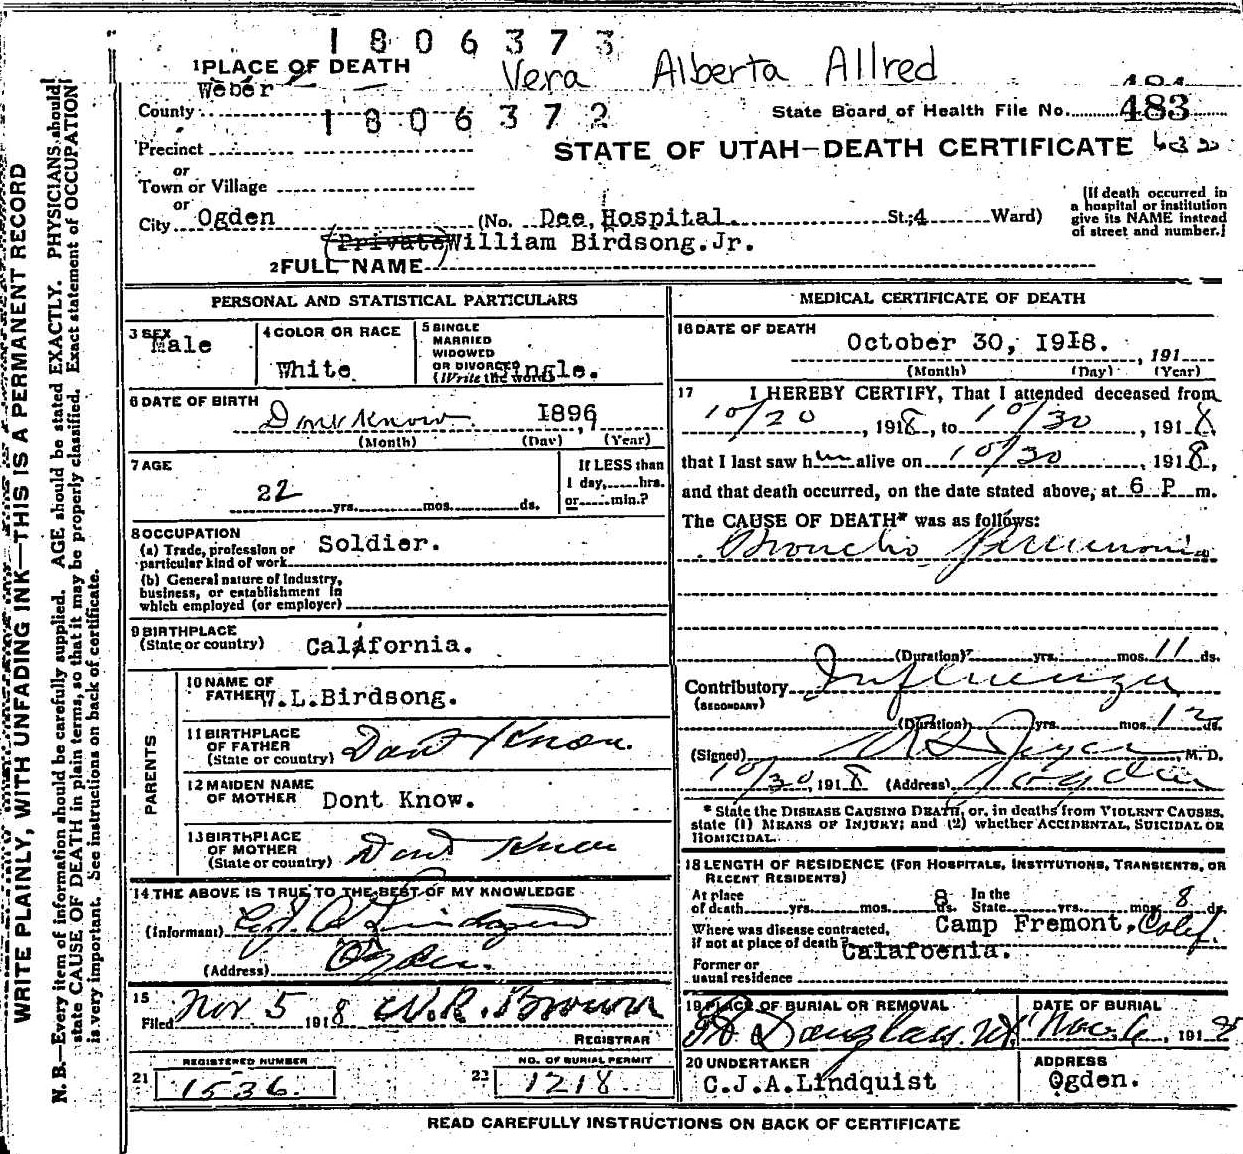 1806373
1 PLACE OF DEATH
Vera Alberta Allred
Weber
County
1806372
State Board of Health File No. 483
Precinct
STATE OF UTAH—DEATH CERTIFICATE
or
Town or Village
or
City Ogden (No. Dee, Hospital. St.; 4 Ward)
(If death occurred in
a hospital or institution
give its NAME instead
of street and number.)
(Private) William Birdsong. Jr.
2 FULL NAME
PERSONAL AND STATISTICAL PARTICULARS
3 SEX
Male
4 COLOR OR RACE
White
5 SINGLE
MARRIED
WIDOWED
OR DIVORCED
(Write the word) Single.
6 DATE OF BIRTH
Dont Know 1896
(Month) (Day) (Year)
7 AGE
22 yrs. mos. ds.
If LESS than
1 day, hrs.
or min.?
8 OCCUPATION
(a) Trade, profession or
particular kind of work Soldier.
(b) General nature of Industry,
business, or establishment in
which employed (or employer)
9 BIRTHPLACE
(State or country) California.
PARENTS
10 NAME OF
FATHER W.L.Birdsong.
11 BIRTHPLACE
OF FATHER
(State or country) Dont Know.
12 MAIDEN NAME
OF MOTHER Dont Know.
13 BIRTHPLACE
OF MOTHER
(State or country) Dont Know
14 THE ABOVE IS TRUE TO THE BEST OF MY KNOWLEDGE
(Informant) Lindquist
(Address) Ogden.
15
Filed Nov 5 1918 W.R. Brown
REGISTRAR
REGISTERED NUMBER
21 1536.
NO. OF BURIAL PERMIT
22 1218.
MEDICAL CERTIFICATE OF DEATH
16 DATE OF DEATH
October 30, 1918. , 191
(Month) (Day) (Year)
17 I HEREBY CERTIFY, That I attended deceased from
10/20, 1918, to 10/30, 1918
that I last saw him alive on 10/30, 1918,
and that death occurred, on the date stated above, at 6 P m.
The CAUSE OF DEATH* was as follows:
Broncho Pneumonia
(Duration) yrs. mos. 11 ds.
Contributory Influenza
(SECONDARY)
(Duration) yrs. mos. 12 ds.
(Signed) , M. D.
10/30, 1918 (Address) Ogden
* State the DISEASE CAUSING DEATH, or, in deaths from VIOLENT CAUSES,
state (1) MEANS OF INJURY; and (2) whether ACCIDENTAL, SUICIDAL OR
HOMICIDAL.
18 LENGTH OF RESIDENCE (FOR HOSPITALS, INSTITUTIONS, TRANSIENTS, OR
RECENT RESIDENTS)
At place
of death yrs. mos. 8 ds.
In the
State yrs. mos. 8 ds
Where was disease contracted,
if not at place of death? Camp Fremont. Calif.
Calafoenia.
Former or
usual residence
19 PLACE OF BURIAL OR REMOVAL
Ft Douglass. Ut.
DATE OF BURIAL
Nov. 6, 1918
20 UNDERTAKER
C.J.A.Lindquist
ADDRESS
Ogden.
READ CAREFULLY INSTRUCTIONS ON BACK OF CERTIFICATE
WRITE PLAINLY, WITH UNFADING INK—THIS IS A PERMANENT RECORD
N. B.—Every item of information should be carefully supplied. AGE should be stated EXACTLY. PHYSICIANS should
state CAUSE OF DEATH in plain terms, so that it may be properly classified. Exact statement of OCCUPATION
is very important. See instructions on back of certificate.